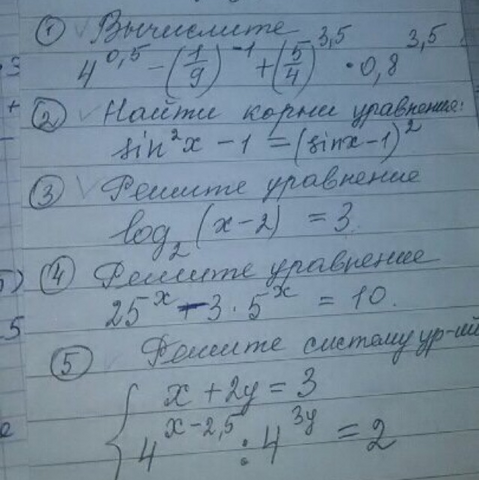 ① Вычислите
4^0,5 − (1/9)^−1 + (5/4)^−3,5 · 0,8^3,5
② Найти корни уравнение:
sin²x − 1 = (sinx − 1)²
③ Решите уравнение
log₂(x − 2) = 3.
④ Решите уравнение
25^x − 3 · 5^x = 10.
⑤ Решите систему ур-ий
{ x + 2y = 3
4^x−2,5 : 4^3y = 2